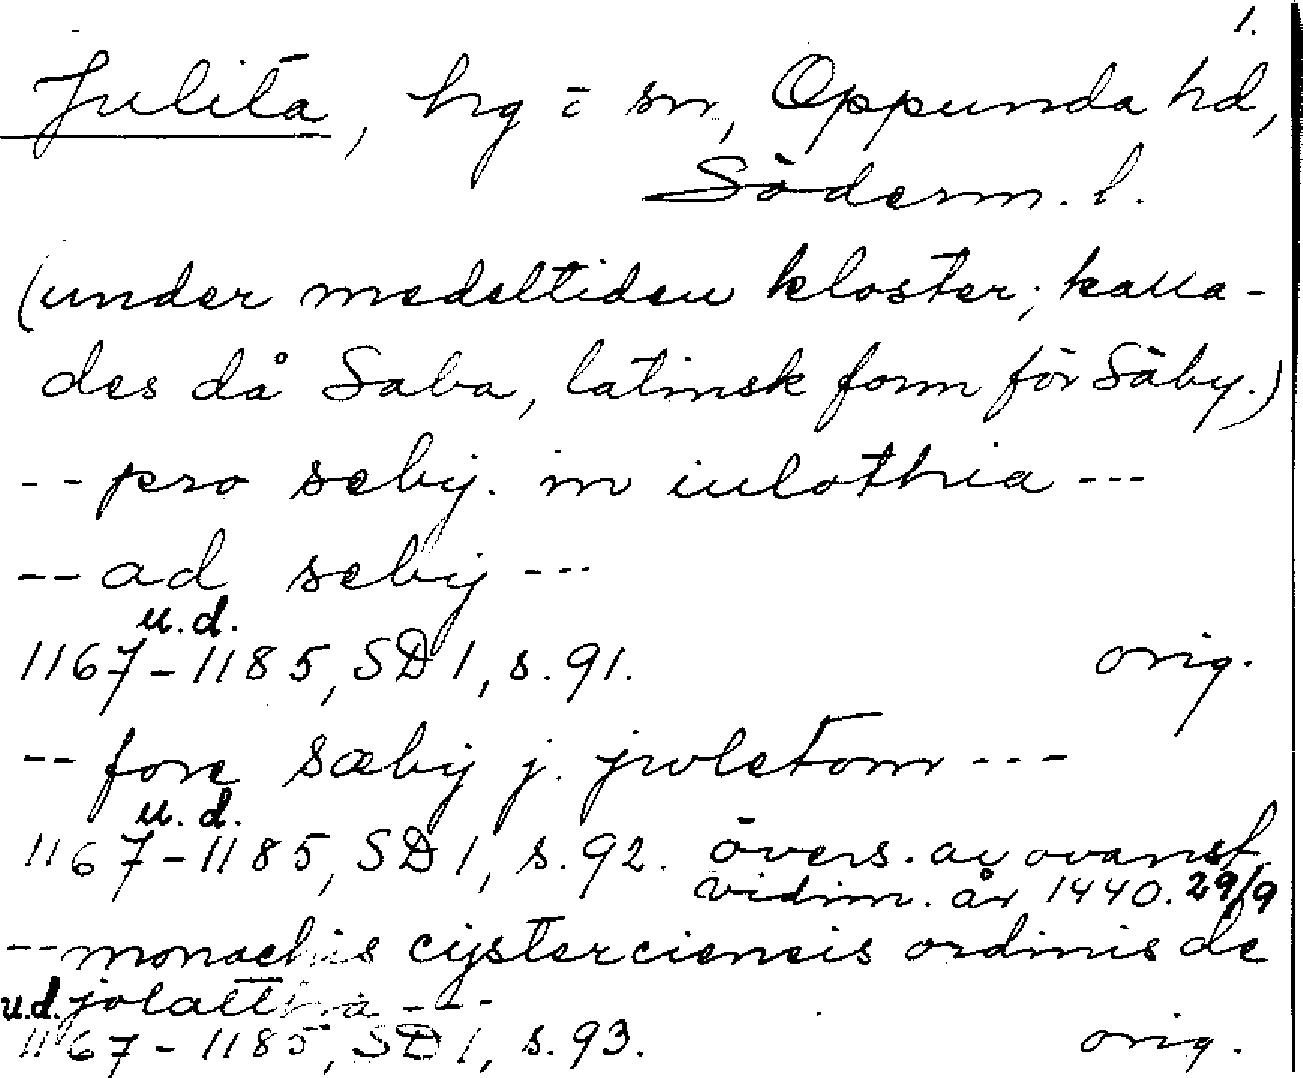 1.
Julita, hg = sn, Oppunda hd,
Söderm. l.
(under medeltiden kloster; kalla-
des då Saba, latinsk form för Säby.)
-- pro seby. in iulothia ---
-- ad seby ---
u.d.
1167-1185, SD 1, s. 91. orig.
-- fore sæby j. juletom ---
u.d.
1167-1185, SD 1, s. 92. övers. av ovanst.
vidim. år 1440. 29/9
-- monachis cysterciensis ordinis de
u.d. jolattira ---
1167-1185, SD 1, s. 93. orig.